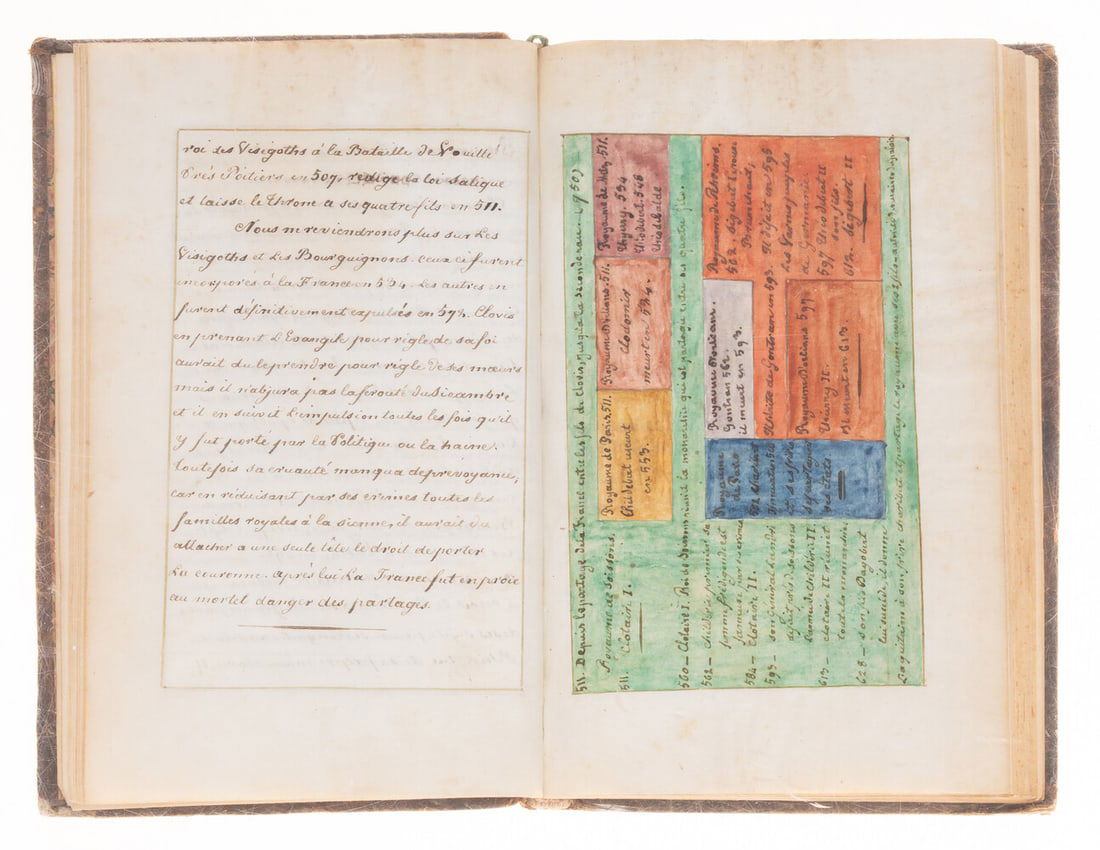 roi des Visigoths à la Bataille de Vouillé
Près Poitiers en 507, rédige la loi Salique
et laisse le Throne à ses quatre fils en 511.
Nous ne reviendrons plus sur Les
Visigoths et Les Bourguignons. ceux ci furent
incorporés à la France en 534. Les autres en
furent définitivement expulsés en Clovis
en prenant L'Evangile pour règle de sa foi
aurait du le prendre pour règle de ses mœurs
mais il n'abjura pas la férocité du Sicambre
et il en suivit L'impulsion toutes les fois qu'il
y fut porté par la Politique ou la haine.
toutefois sa cruauté manqua de prévoyance,
car en réduisant par ses crimes toutes les
familles royales à la sienne, il aurait du
attacher a une seule tête le droit de porter
La couronne. après lui La France fut en proie
au mortel danger des partages.
511. Depuis le partage de la France entre les fils de Clovis, jusqu'à
Royaume de Soissons,
511. Clotair I.
Royaume de Metz, 511.
Thyerry. 534
Théodebat. 548
Théodebalde
Royaume d'Orléans. 511.
Clodomir
meurt en 524.
Royaume de Paris 511.
Childebat meurt
en 553.
560 — Clotaire I. Roi de réunit la monarchie qui est partagée entre ses quatre fils.
Royaume de Rheims,
562. Sigebert époux
Brunehaut,
Il défait en 595
les Varnes peuples
de Germanie
597 Théodebert II
son fils.
612. Sigebert II
Royaume d'Orléans.
Gontran 562.
il meurt en 593.
de Gontran en 593.
Royaume d'Orléans 597.
Thierry II.
Il meurt en 613.
Royaume
de Paris
ses états.
562 —
584 — Clotair II.
593 —
613 — Clotair II réunit
toute la monarchie
628 — son fils Dagobert
lui succède et donne
L'aquitaine à son frère charibert et